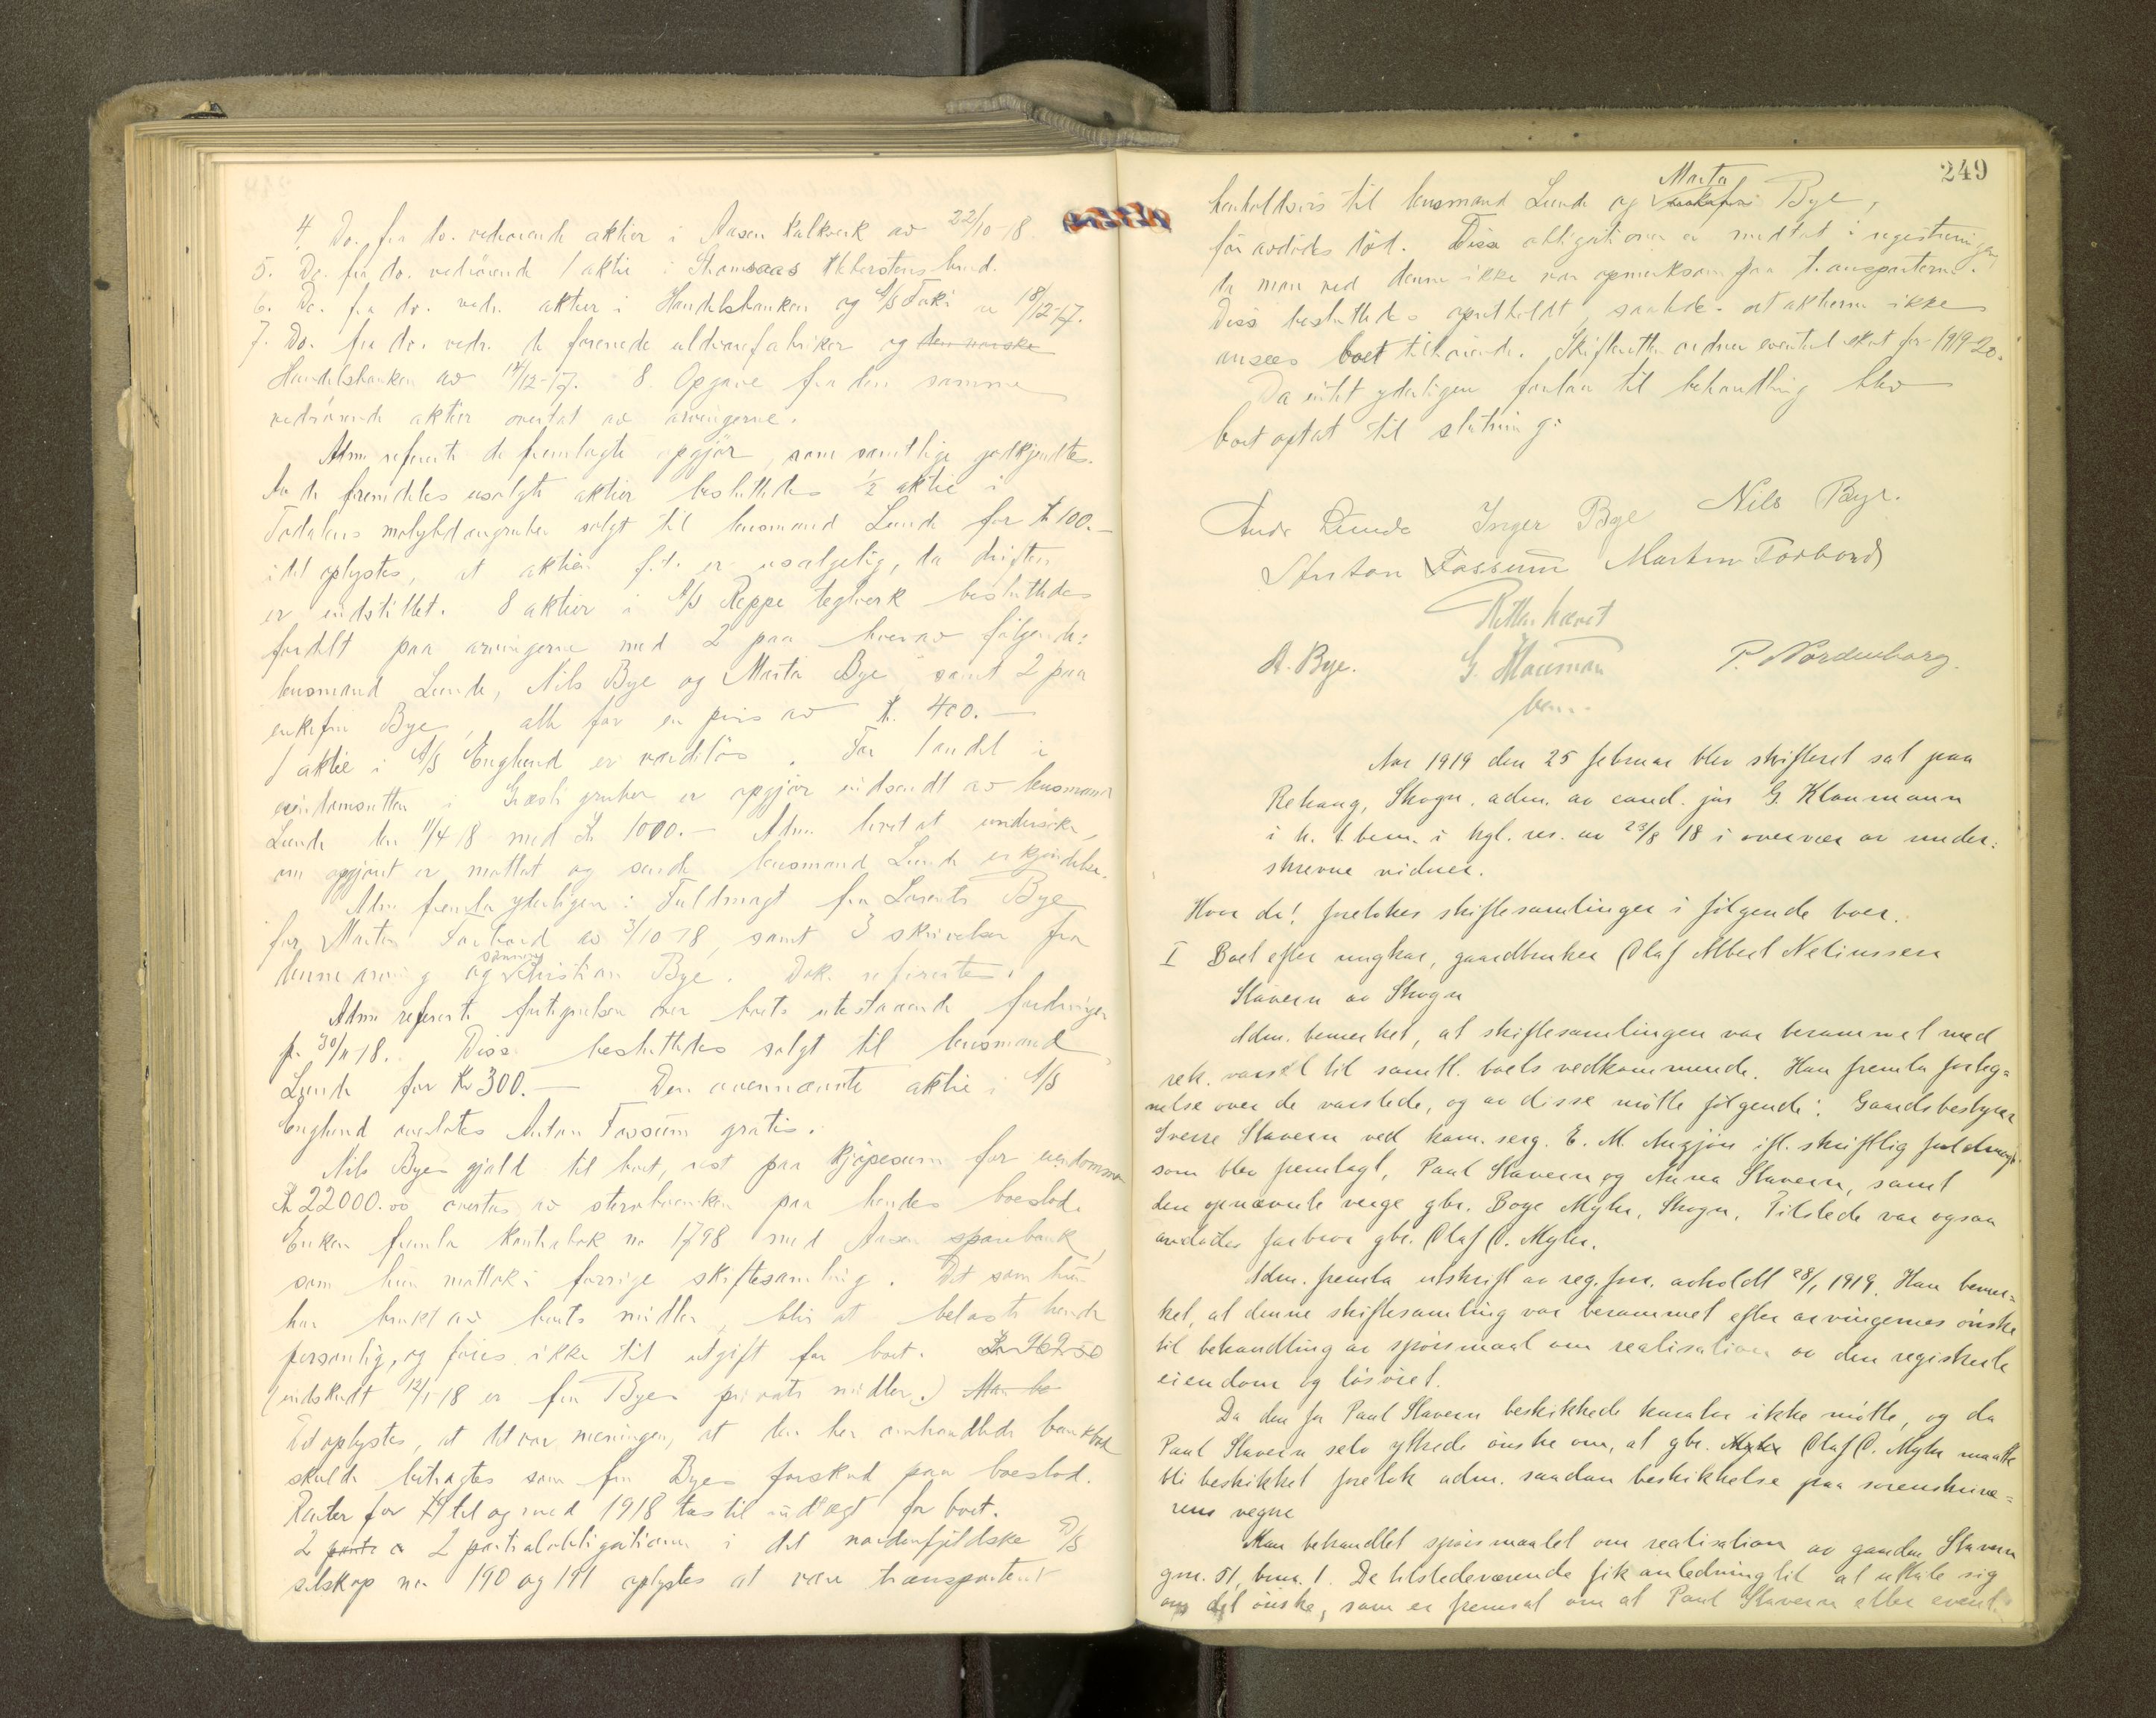 4. Do. fra do. vedrørende aktier i Aasen Kalkverk av 22/10-18
5. Do. fra do. vedrørende 1 aktie i
6. Do. fra do. vedr. aktier i Handelsbanken og A/S av 18/12-17.
7. Do. fra do. vedr. de forenede uldvarefabriker og den norske
Handelsbanken av 14/12-17. 8. Opgave fra den samme
vedrørende aktier overtat av arvingerne.
Adm. refererte de fremlagte opgjør, som samtlige godkjendtes.
Av de fremdeles usolgte aktier besluttedes 1/2 aktie i
solgt til lensmand Lunde for Kr 100.—
idet oplystes, at aktien f.t. er usælgelig, da driften
er indstillet. 8 aktier i A/S Reppe teglverk besluttedes
fordelt paa arvingerne med 2 paa hver av følgende:
lensmand Lunde, Nils Bye og Marta Bye samt 2 paa
enkefru Bye, alt for en pris av Kr. 400.—
1 aktie i A/S Englund er værdiløs. For 1 andel i
eiendomsretten i Græsli gruber er opgjør indsendt av lensmand
Lunde den 11/4 18 med Kr 1000.— Adm. lovet at undersøke,
om opgjøret er mottat og sende lensmand Lunde erkjendelse.
Adm. fremla yderligere: Fuldmagt fra Lorents Bye
for Martin Forbord av 3/10 18, samt 3 skrivelser fra
denne arving og sønnen Kristian Bye. Dok. refererte.
Adm. refererte fortegnelsen over boets utestaaende fordringer
pr. 30/11-18. Disse besluttedes solgt til lensmand
Lunde for Kr 300.— Den ovennævnte aktie i A/S
Englund overlates Anton Fossum gratis.
Nils Byes gjæld til boet, rest paa kjøpesum for eiendommen
Kr 22000.00 overtas av sterbboenken paa hendes boeslod.
Enken fremla kontrabok no 1798 med Aasen sparebank,
som hun mottok i forrige skiftesamling. Det som hun
har brukt av boets midler, blir at belaste hende
personlig, og føres ikke til utgift for boet. Kr 969.50
(indskudt 12/1-18 er fru Byes private midler.) Man be
Det oplystes, at det var meningen, at den her omhandlede bankbok
skulde betragtes som fru Byes forskud paa boeslod.
Renter for til og med 1918 tas til indtægt for boet.
2 2 partialobligationer i det nordenfjeldske D/S
selskap no 190 og 191 oplystes at være transportert
249
henholdsvis til lensmand Lunde og Marta Bye,
før avdødes død. Disse obligationer er medtat i registreringen,
da man ved denne ikke var opmerksom paa transporterne.
Disse besluttedes opretholdt, saaledes at aktierne ikke
ansees boet tilhørende. Skifteretten ordner eventuel skat for 1919-20.
Da intet yderligere forelaa til behandling blev
boet optat til slutning:
Lunde Inger Bye Nils Bye.
Anton Fossum Martin Forbord
Retten hævet
A. Bye. G. Klaumann P. Nordenborg.
bem.
Aar 1919 den 25 februar blev skifteret sat paa
Rekang, Skogn. adm. av cand. jur G. Klaumann
i h. t. bem. i kgl. res. av 23/8 18 i overvær av under:
skrevne vidner.
Hvor da! foretokes skiftesamlinger i følgende boer.
I Boet efter ungkar, gaardbruker Olaf Albert Neliussen
Stavern av Skogn
Adm. bemerket, at skiftesamlingen var berammet med
rek. varsel til samtl. boets vedkommende. Han fremla forteg=
nelse over de varslede, og av disse møtte følgende: Gaardsbestyrer
Sverre Stavern ved kom. serg. E. M. ifl. skriftlig fuldmagt
som blev fremlagt, Paul Stavern og Anna Stavern, samt
den opnævnte verge gbr. Boye Myhr, Skogn. Tilstede var ogsaa
avdødes farbror gbr. Olaf O. Myhr.
Adm. fremla utskrift av reg. forr. avholdt 28/1 1919. Han bemer=
ket, at denne skiftesamling var berammet efter arvingernes ønske
til behandling av spørsmaal om realisation av den registrerte
eiendom og løsøret.
Da den for Paul Stavern beskikkede kurator ikke møtte, og da
Paul Stavern selv ytrede ønske om, at gbr. Myhr Olaf O. Myhr maatte
bli beskikket foretok adm. saadan beskikkelse paa sorenskrive=
rens vegne
Man behandlet spørsmaalet om realisation av gaarden Stavern
gnr. 51, bnr. 1. De tilstedeværende fik anledning til at uttale sig
om det ønske, som er fremsat om at Paul Stavern eller event.